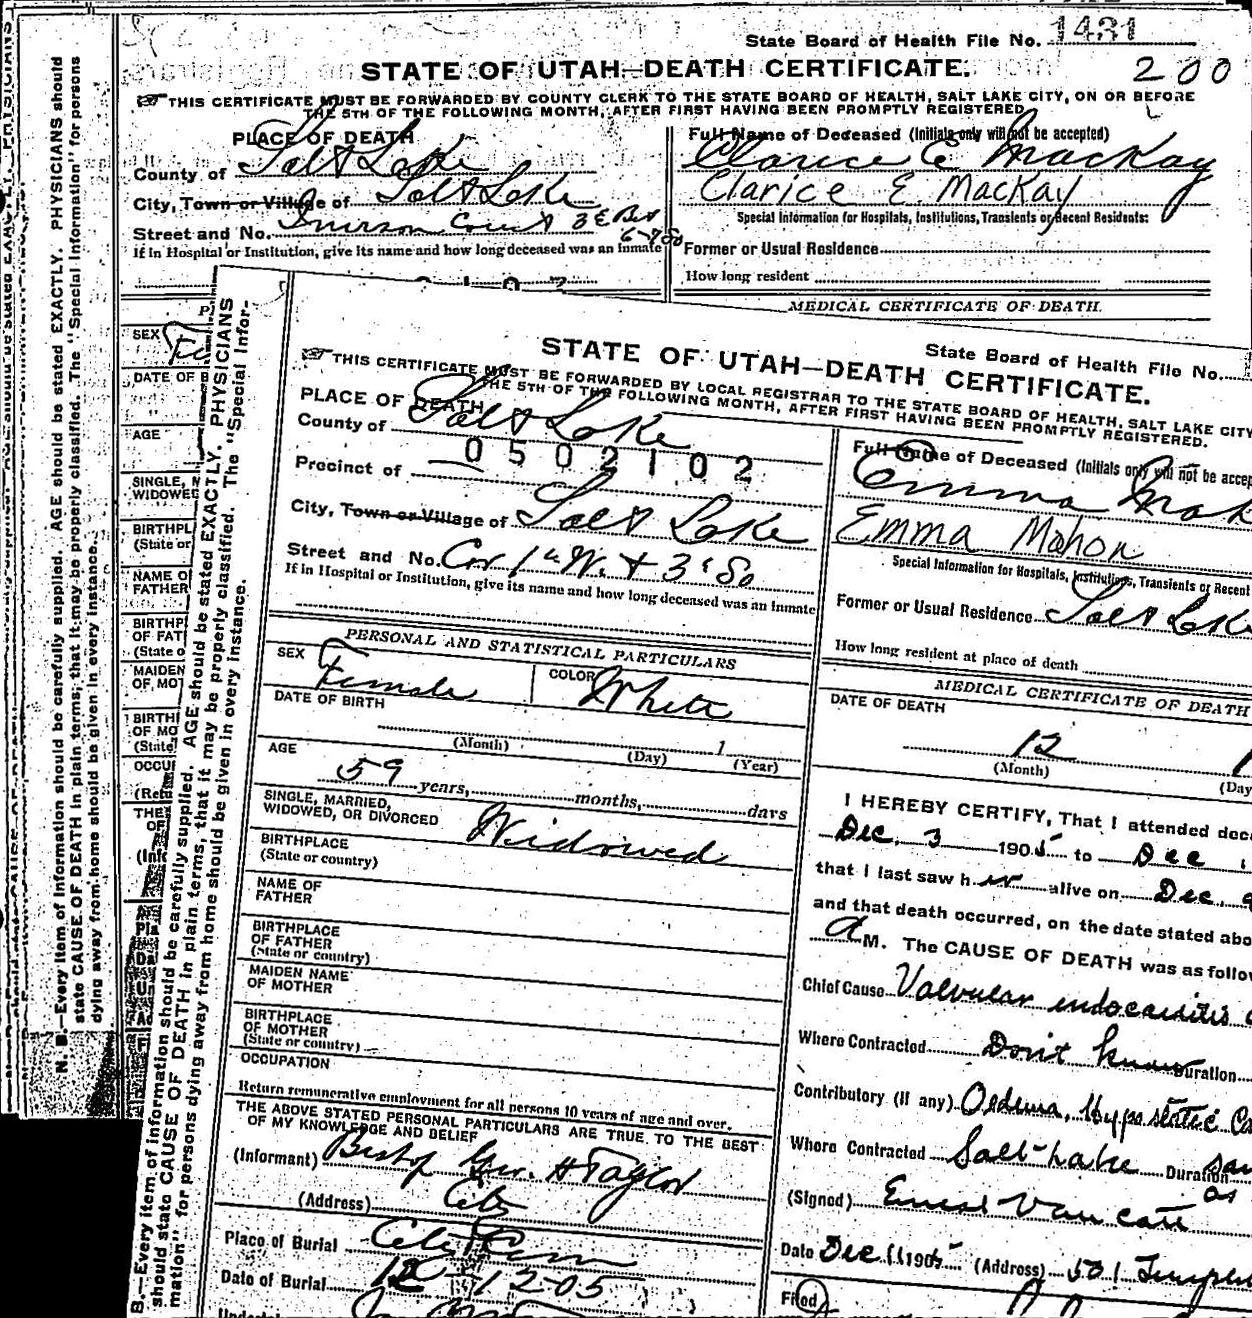 State Board of Health File No. 1431
STATE OF UTAH—DEATH CERTIFICATE.
200
THIS CERTIFICATE MUST BE FORWARDED BY COUNTY CLERK TO THE STATE BOARD OF HEALTH, SALT LAKE CITY, ON OR BEFORE
THE 5TH OF THE FOLLOWING MONTH, AFTER FIRST HAVING BEEN PROMPTLY REGISTERED
PLACE OF DEATH
County of Salt Lake
City, Town or Village of Salt Lake
Street and No. Court 3 E Bet
6-7 So
If in Hospital or Institution, give its name and how long deceased was an inmate
Full Name of Deceased (Initials only will not be accepted)
Clarice E MacKay
Clarice E. MacKay
Special Information for Hospitals, Institutions, Transients or Recent Residents:
Former or Usual Residence
How long resident
MEDICAL CERTIFICATE OF DEATH.
SEX Fe
DATE OF B
AGE
SINGLE, M
WIDOWED
BIRTHPL
(State or
NAME O
FATHER
BIRTHP
OF FAT
(State o
MAIDEN
OF MOT
BIRTH
OF MO
(State
OCCU
(Retu
THE
OF
(Info
Pla
Da
N. B.—Every item of information should be carefully supplied. AGE should be stated EXACTLY. PHYSICIANS should
state CAUSE OF DEATH in plain terms, that it may be properly classified. The "Special Information" for persons
dying away from home should be given in every instance.
STATE OF UTAH—DEATH CERTIFICATE.
State Board of Health File No.
THIS CERTIFICATE MUST BE FORWARDED BY LOCAL REGISTRAR TO THE STATE BOARD OF HEALTH, SALT LAKE CITY
THE 5TH OF THE FOLLOWING MONTH, AFTER FIRST HAVING BEEN PROMPTLY REGISTERED.
PLACE OF DEATH
County of Salt Lake
0502102
Precinct of
City, Town or Village of Salt Lake
Street and No. Cor 1st W. & 3rd So
If in Hospital or Institution, give its name and how long deceased was an inmate
Full Name of Deceased (Initials only will not be accep
Emma Mah
Emma Mahon
Special Information for Hospitals, Institutions, Transients or Recent
Former or Usual Residence Salt Lake
How long resident at place of death
PERSONAL AND STATISTICAL PARTICULARS
SEX Female
COLOR White
DATE OF BIRTH
1
(Month) (Day) (Year)
AGE
59 years, months, days
SINGLE, MARRIED,
WIDOWED, OR DIVORCED Widowed
BIRTHPLACE
(State or country)
NAME OF
FATHER
BIRTHPLACE
OF FATHER
(State or country)
MAIDEN NAME
OF MOTHER
BIRTHPLACE
OF MOTHER
(State or country)
OCCUPATION
Return remunerative employment for all persons 10 years of age and over.
THE ABOVE STATED PERSONAL PARTICULARS ARE TRUE TO THE BEST
OF MY KNOWLEDGE AND BELIEF
(Informant) Bishop Geo. H Taylor
(Address) City
Place of Burial City Cem
Date of Burial 12 12-05
MEDICAL CERTIFICATE OF DEATH
DATE OF DEATH
12 1
(Month) (Day
I HEREBY CERTIFY, That I attended dece
Dec. 3 1905 to Dec
that I last saw her alive on Dec. 9
and that death occurred, on the date stated abo
a M. The CAUSE OF DEATH was as follow
Chief Cause Valvular endocarditis
Where Contracted Don't know Duration
Contributory (If any) Oedema, Hypostatic Co
Where Contracted Salt-Lake Duration sam
as
(Signed) Ernest Van Cott
Date Dec 11 1905 (Address) 501 Templet
Filed
B.—Every item of information should be carefully supplied. AGE should be stated EXACTLY. PHYSICIANS
should state CAUSE OF DEATH in plain terms, that it may be properly classified. The "Special Infor-
mation" for persons dying away from home should be given in every instance.